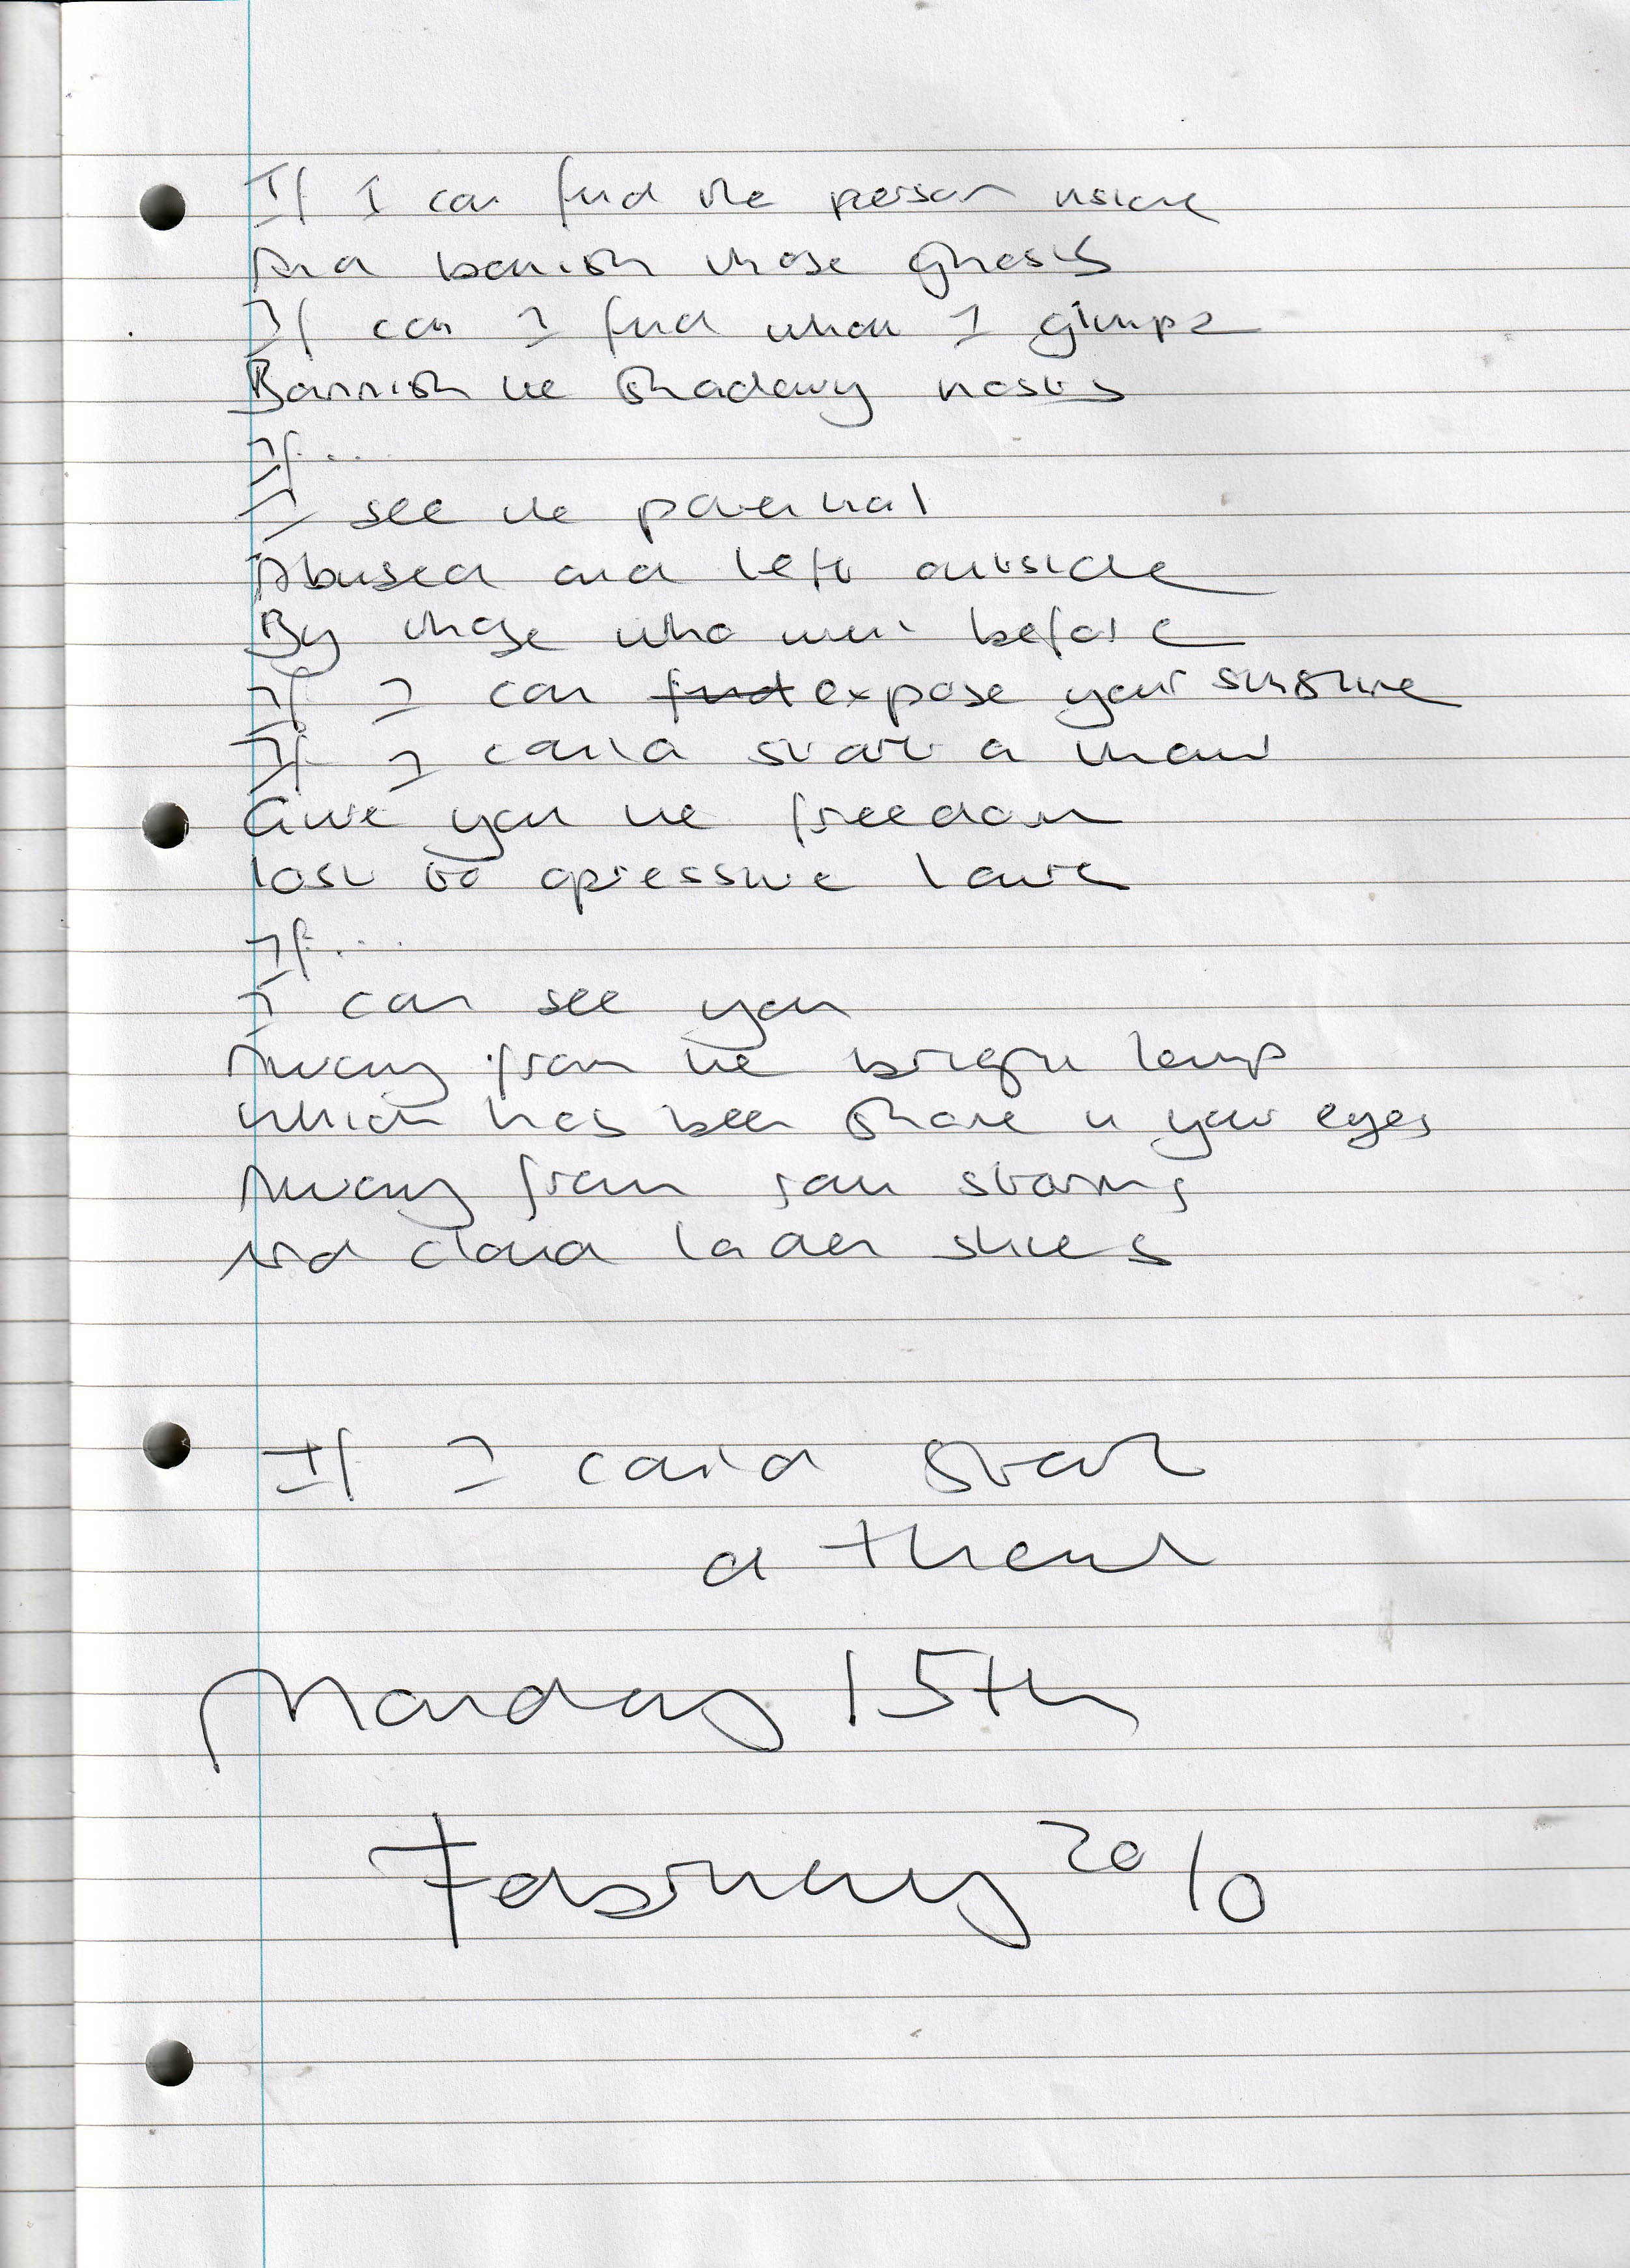 If I can find the person inside
And banish those ghosts
If can I find what I glimpse
Bannish the shadowy hosts
If...
I see the potential
Abused and left outside
By those who went before
If I can find expose your sunshine
If I could start a thaw
Give you the freedom
lost to opressive laws
If...
I can see you
Away from the bright lamp
which has been shone in your eyes
Away from rain storms
And cloud laden skies
If I could start
a thaw
Monday 15th
February 2010